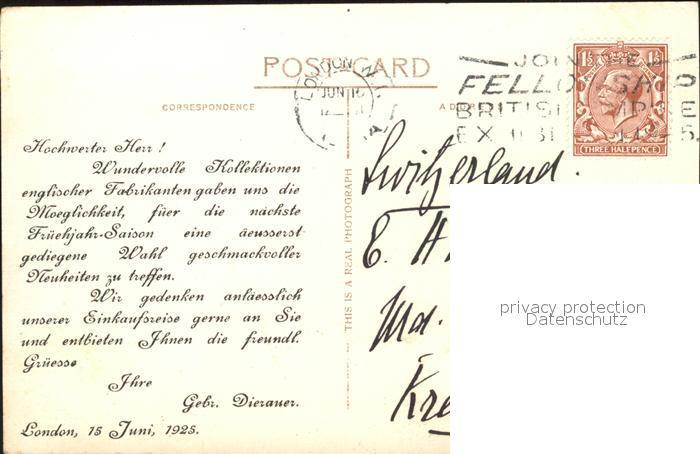 POST CARD
CORRESPONDENCE
THIS IS A REAL PHOTOGRAPH
LONDON. W.1
JUN 16
JOIN THE
BRITISH
1½ 1½
THREE HALFPENCE
Hochwerter Herr !
Wundervolle Kollektionen
englischer Fabrikanten gaben uns die
Moeglichkeit, füer die nächste
Früehjahr-Saison eine äeusserst
gediegene Wahl geschmackvoller
Neuheiten zu treffen.
Wir gedenken anläesslich
unserer Einkaufsreise gerne an Sie
und entbieten Ihnen die freundl.
Grüesse
Ihre
Gebr. Dierauer.
London, 15 Juni, 1925.
Switzerland.
E. H
Md.
Kre
privacy protection
Datenschutz